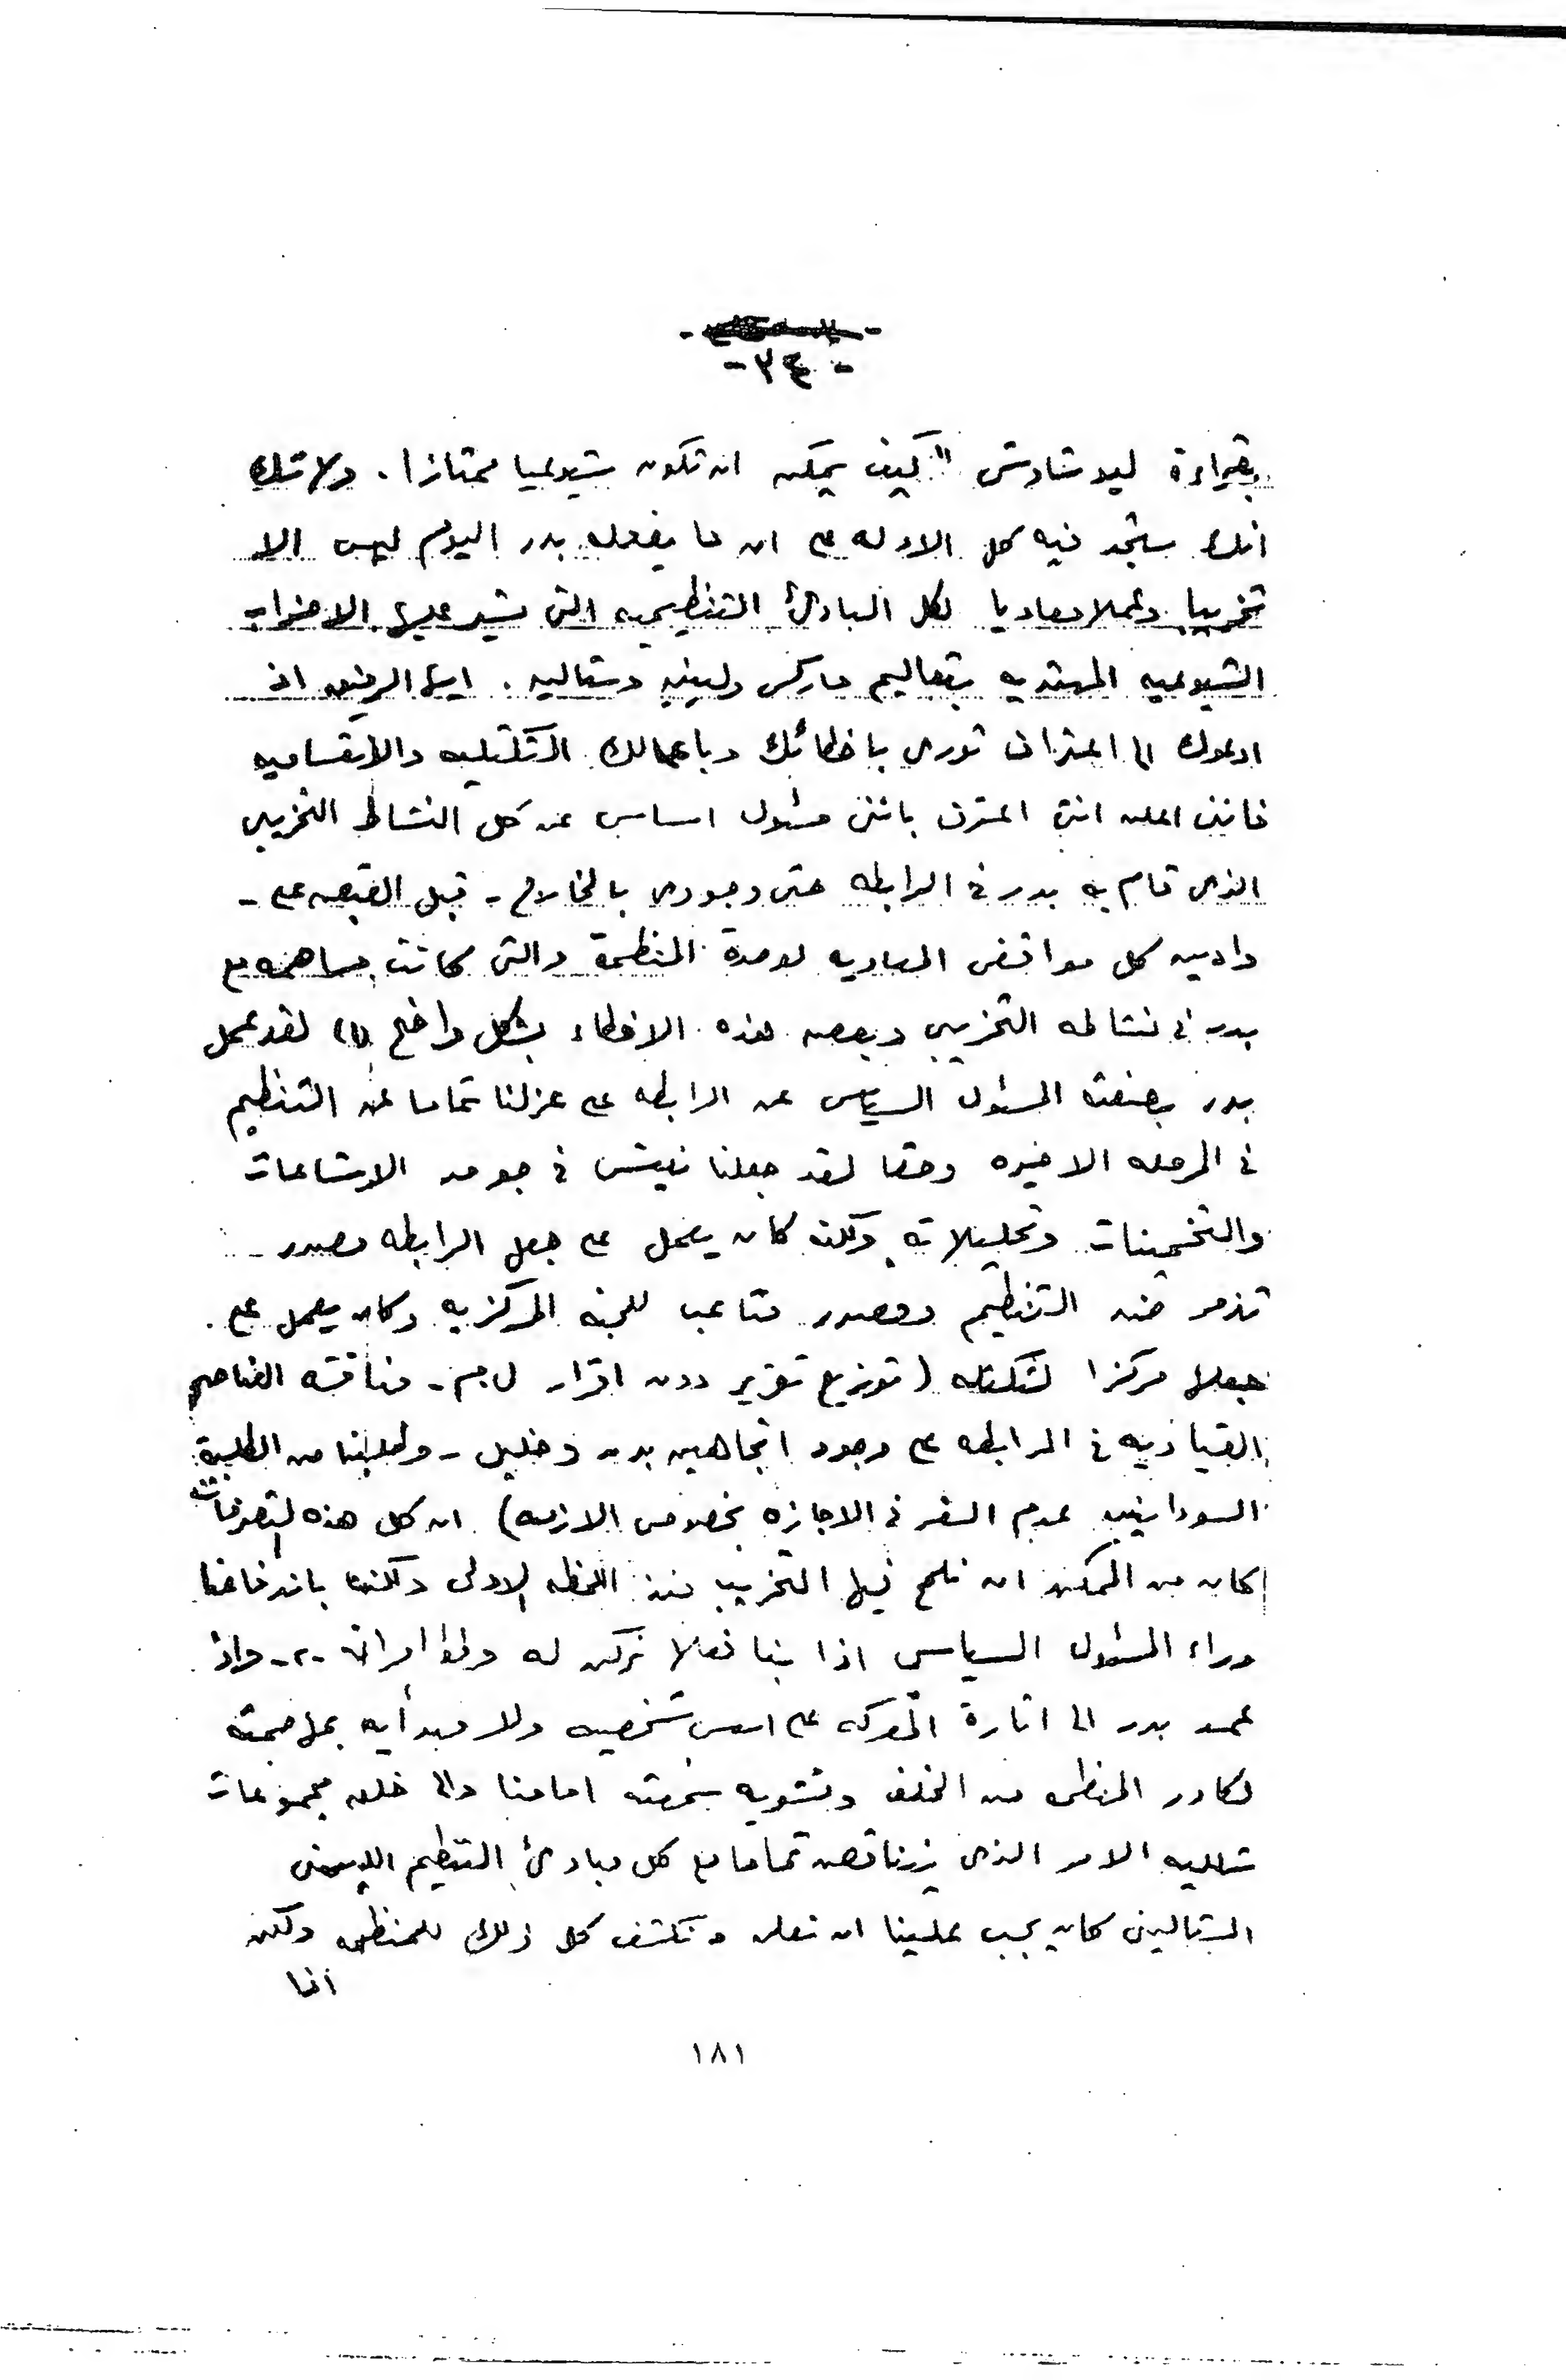 - ٢٤ -
بقراءة ليو شاوتشى " كيف يمكن ان تكون شيوعيا ممتازا . ولا شك
انك ستجد فيه كل الادله على ان ما يفعله بدر اليوم ليس الا
تخريبا وعملا معاديا لكل المبادئ التنظيميه التى تسير عليها الاحزاب
الشيوعيه المهتديه بتعاليم ماركس ولينين وستالين . ايها الرفيق اننى
ادعوك الى اعتراف ثورى باخطائك وباعمالك التكتليه والانقساميه
فاننى اعلن اننى اعترف باننى مسئول اساسى عن كل النشاط التخريبى
الذى قام به بدر فى الرابطه حتى وجودى بالخارج - قبل القبض على -
وادين كل مواقفى المعاديه لوحدة المنظمة والتى كانت مساهمه مع
بدر فى نشاطه التخريبى وبعض هذه الاخطاء بشكل واضح (١) لقد عمل
بدر بصفته المسئول السياسى عن الرابطه على عزلنا تماما عن التنظيم
فى المرحله الاخيره وحقا لقد جعلنا نعيش فى جو من الاشاعات
والتخمينات وتحليلاته ولكنه كان يعمل على جعل الرابطه مصدر -
تذمر ضد التنظيم ومصدر متاعب للجنه المركزيه وكان يعمل على .
جعلها مركزا لتكتله ( توزيع تقرير دون اقرار ل . م . - مناقشه العناصر
القياديه فى الرابطه على وجود اتجاهين بدر وخليل - وطلبنا من الطلبة
السودانيين عدم السفر فى الاجازه بخصوص الازمه ) ان كل هذه التصرفات
كان من الممكن ان نلمح فيها التخريب منذ اللحظه الاولى ولكننا باندفاعنا
وراء المسئول السياسى اذا بنا فعلا نركن له - ٢ - واذ
عمد بدر الى اثارة المعركه على اسس شخصيه ولا مبدأيه بمهاجمته
لكادر المنظمه من الخلف وتشويه سمعته امامنا والى خلق مجموعات
شلليه الامر الذى يتناقض تماما مع كل مبادئ التنظيم اللينينى
الستالينى كان يجب علينا ان نعلن ونكشف كل ذلك للمنظمه ولكن
اننا
١٨١